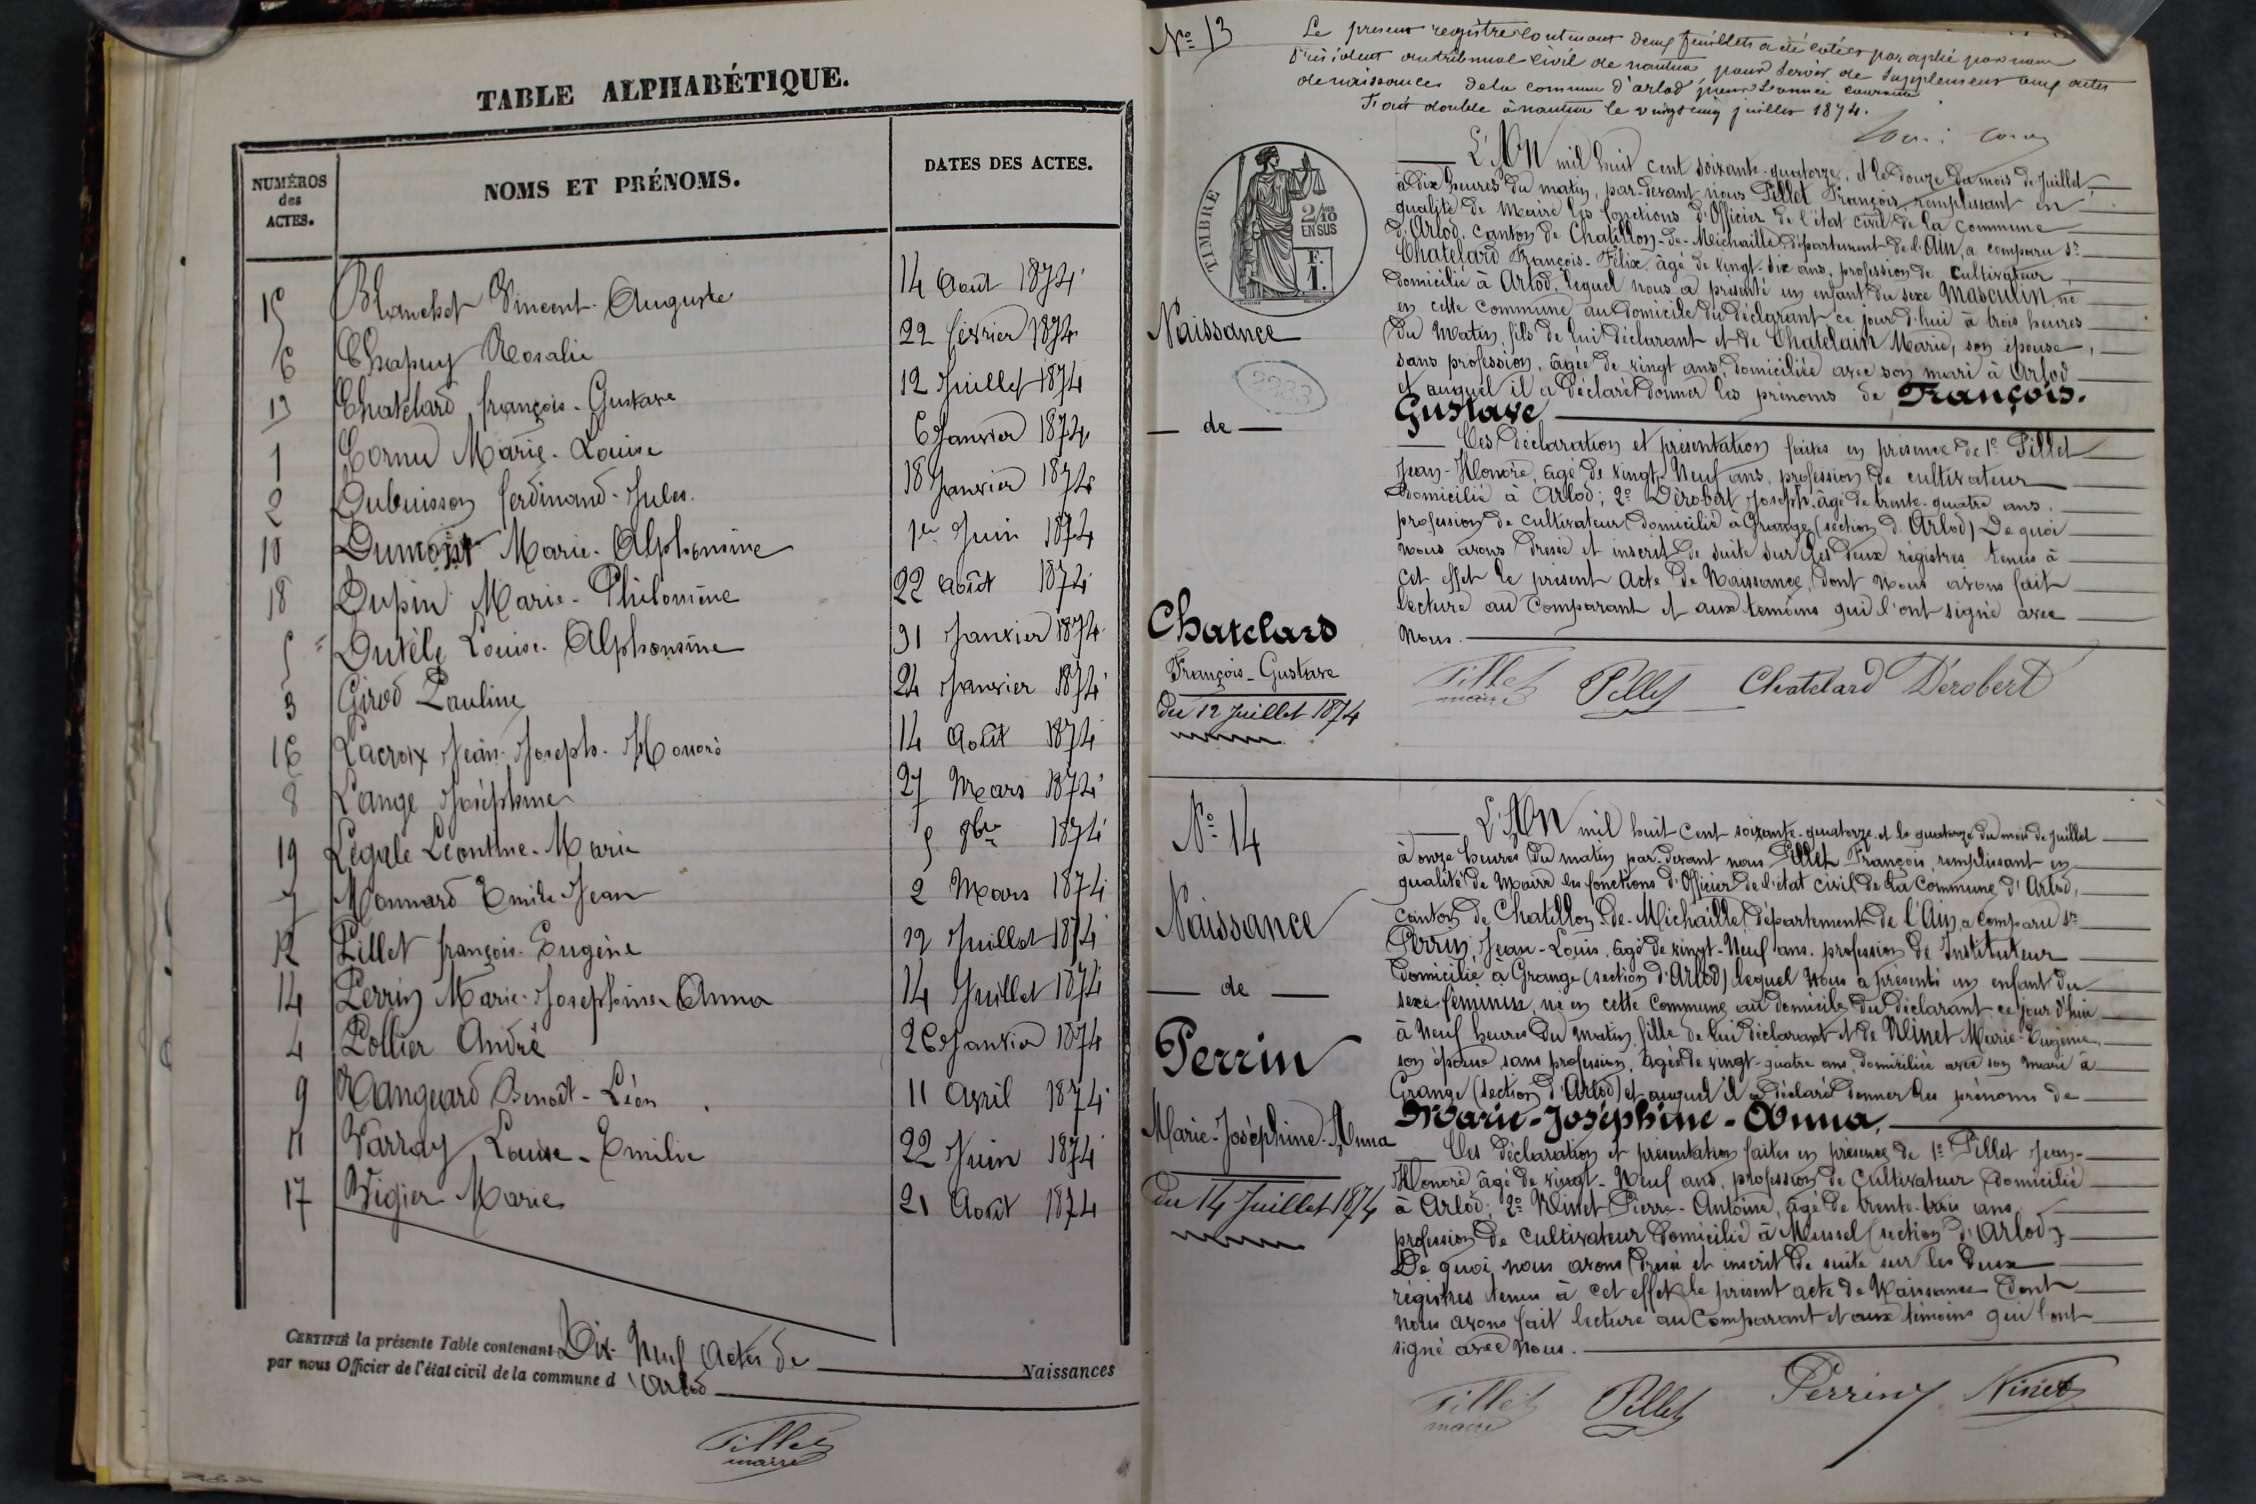 TABLE ALPHABÉTIQUE.
NUMÉROS des ACTES.
NOMS ET PRÉNOMS.
DATES DES ACTES.
15 Blanchet Vincent-Auguste 14 Août 1874
6 Chapuy Rosalie 22 février 1874
13 Chatelard françois-Gustave 12 Juillet 1874
1 Cornu Marie-Louise 6 Janvier 1874
2 Dubuisson ferdinand-Jules. 18 Janvier 1874
10 Dumont Marie-Alphonsine 1er Juin 1874
18 Dupin Marie-Philomène 22 août 1874
5 Dutèle Louise-Alphonsine 31 Janvier 1874
3 Girod Pauline 24 Janvier 1874
16 Lacroix Jean-Joseph-Honoré 14 Août 1874
8 Lange Joséphine 27 Mars 1874
19 Légale Léontine-Marie 5 8bre 1874
7 Monnard Emile-Jean 2 Mars 1874
12 Pillet françois-Eugène 12 Juillet 1874
14 Perrin Marie-Josephine-Anna 14 Juillet 1874
4 Pollier André 26 Janvier 1874
9 Ranguard Benoît-Léon 11 Avril 1874
11 Varray Louise-Emilie 22 Juin 1874
17 Vigier Marie 21 Août 1874
CERTIFIÉ la présente Table contenant Dix-Neuf actes de Naissances
par nous Officier de l'état civil de la commune d'Arlod
Pillet
maire
No 13
Le présent registre contenant deux feuillets a été coté et paraphé par nous
Président au tribunal civil de nantua, pour servir de supplément aux actes
de naissances de la commune d'arlod, pour l'année courante
Fait double à nantua le vingt cinq juillet 1874.
TIMBRE
2/10
EN SUS
F.
1.
Naissance
2233
de
Chatelard
François-Gustave
Du 12 Juillet 1874
L'AN mil huit cent soixante-quatorze, et le douze du mois de Juillet,
à dix heures du matin, par-devant nous Pillet François, remplissant en
qualité de Maire les fonctions d'Officier de l'état civil de la Commune
d'Arlod, canton de Chatillon-de-Michaille, département de l'Ain, a comparu Sr
Chatelard François-Félix, âgé de vingt-six ans, profession de Cultivateur,
domicilié à Arlod, lequel nous a présenté un enfant du sexe Masculin, né
en cette commune au domicile du déclarant ce jour d'hui à trois heures
du Matin, fils de lui déclarant et de Chatelain Marie, son épouse,
sans profession, âgée de vingt ans, domiciliée avec son mari à Arlod
et auquel il a déclaré donner les prénoms de François.
Gustave
Ces déclaration et présentation faites en présence de 1o Pillet
Jean-Honoré, âgé de vingt-Neuf ans, profession de cultivateur
domicilié à Arlod; 2o Dérobert Joseph, âgé de trente-quatre ans.
profession de cultivateur domicilié à Grange (section d'Arlod) De quoi
nous avons dressé et inscrit de suite sur les deux régistres tenus à
cet effet le présent Acte de Naissance, dont nous avons fait
lecture au Comparant et aux témoins qui l'ont signé avec
Nous.
Pillet
maire
Pillet
Chatelard
Dérobert
No 14
Naissance
de
Perrin
Marie-Joséphine-Anna
Du 14 Juillet 1874
L'AN mil huit cent soixante-quatorze et le quatorze du mois de Juillet
à onze heures du matin par-devant nous Pillet François, remplissant en
qualité de Maire les fonctions d'Officier de l'état civil de la Commune d'Arlod,
canton de Chatillon-de-Michaille, département de l'Ain, a comparu Sr
Perrin Jean-Louis, âgé de vingt-Neuf ans, profession de Instituteur
domicilié à Grange (section d'Arlod) lequel Nous a présenté un enfant du
sexe féminin, né en cette Commune au domicile du déclarant ce jour d'hui
à Neuf heures du matin, fille de lui déclarant et de Ninet Marie-Eugénie,
son épouse sans profession, âgée de vingt-quatre ans, domiciliée avec son mari à
Grange (section d'Arlod) et auquel il a déclaré donner les prénoms de
Marie-Joséphine-Anna.
Ces déclaration et présentation faites en présence de 1o Pillet Jean-
Honoré âgé de vingt-Neuf ans, profession de Cultivateur domicilié
à Arlod; 2o Ninet Pierre-Antoine, âgé de trente-trois ans
profession de cultivateur domicilié à Mussel (section d'Arlod)
De quoi nous avons dressé et inscrit de suite sur les deux
régistres tenus à cet effet le présent acte de Naissance dont
nous avons fait lecture au Comparant et aux témoins qui l'ont
signé avec Nous.
Pillet
maire
Pillet
Perrin
Ninet